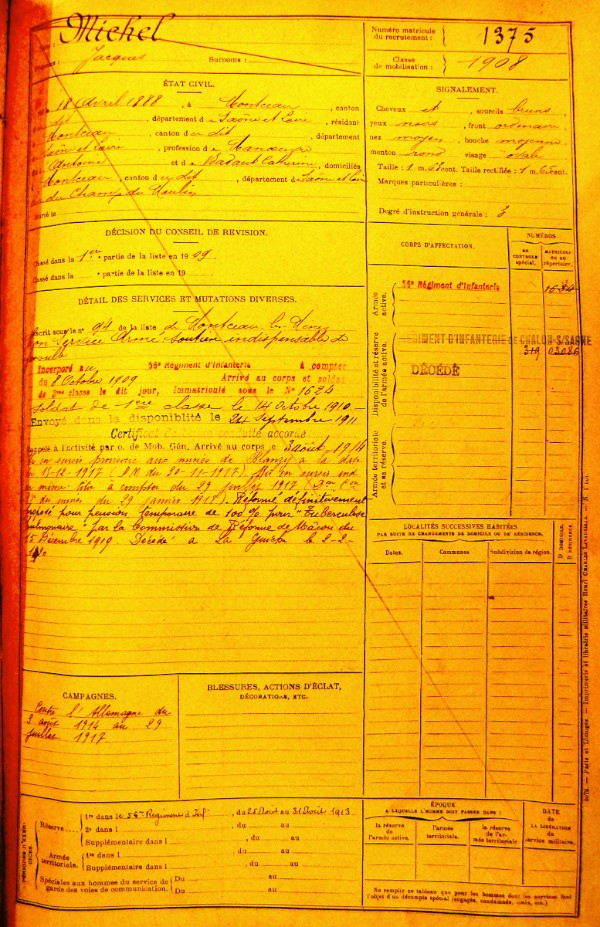 Michel
Jacques
Surnoms :
Numéro matricule du recrutement : 1375
Classe de mobilisation : 1908
ÉTAT CIVIL.
18 Avril 1888, à Montceau, canton
dit, département de Saône et Loire, résidant
Montceau, canton du dit, département
Saône et Loire, profession de Manœuvre
Antoine et de Badaut Catherine, domiciliés
Montceau, canton du dit, département de Saône et Loire
du Champ du Moulin
Marié le
SIGNALEMENT.
Cheveux et, sourcils bruns,
yeux noirs, front ordinaire
nez moyen, bouche moyenne
menton rond visage ovale
Taille : 1 m. cent. Taille rectifiée : 1 m. cent.
Marques particulières :
Degré d'instruction générale : 3
DÉCISION DU CONSEIL DE REVISION.
Classé dans la 1ère partie de la liste en 1909.
Classé dans la partie de la liste en 19
DÉTAIL DES SERVICES ET MUTATIONS DIVERSES.
Inscrit sous le n° 94 de la liste de Montceau les Mines
Bon Service Armé Soutien indispensable de
famille
Incorporé au 56e Régiment d'Infanterie à compter
du 8 Octobre 1909 Arrivé au corps et soldat
de 2me classe le dit jour, immatriculé sous le N° 1624
Soldat de 1ère classe le 14 Octobre 1910.
Envoyé dans la disponibilité le 24 Septembre 1911
Certificat de bonne conduite accordé
Rappelé à l'activité par o. de Mob. Gén. Arrivé au corps le 3 août 1914
en sursis provisoire aux mines de Blanzy à la date
13-12-1915 (D.M. du 20-11-1915)
même titre à compter du 29 juillet 1917
du 29 janvier 1918). Réformé définitivement
proposé pour pension temporaire de 100 % pour "Tuberculose
pulmonaire" par la Commission de Réforme de Mâcon du
15 Décembre 1919. Décédé à La Guiche le 2-2-
CORPS D'AFFECTATION.
NUMÉROS
AU CONTRÔLE spécial.
MATRICULE ou au répertoire.
Armée active.
56e Régiment d'Infanterie
1624
Disponibilité et réserve de l'armée active.
REGIMENT D'INFANTERIE de CHALON-S/SAONE
319 02086
DÉCÉDÉ
Armée territoriale et sa réserve.
LOCALITÉS SUCCESSIVES HABITÉES
PAR SUITE DE CHANGEMENTS DE DOMICILE OU DE RÉSIDENCE.
Dates.
Communes
Subdivision de région.
D DOMICILE.
R RÉSIDENCE.
CAMPAGNES.
Contre l'Allemagne du
3 août 1914 au 29
juillet 1917
BLESSURES, ACTIONS D'ÉCLAT,
DÉCORATIONS, ETC.
Réserve
1re dans le 56e Régiment d'Inf, du 25 Août au 31 Août 1913
2e dans l , du au
Supplémentaire dans l , du au
Armée territoriale.
1re dans l , du au
Supplémentaire dans l , du au
Spéciales aux hommes du service de garde des voies de communication.
Du au
Du au
ÉPOQUE
A LAQUELLE L'HOMME DOIT PASSER DANS :
la réserve de l'armée active.
l'armée territoriale.
la réserve de l'armée territoriale
DATE de LA LIBÉRATION du service militaire.
Ne remplir ce tableau que pour les hommes dont les services font
l'objet d'un décompte spécial (engagés, condamnés, omis, etc.)